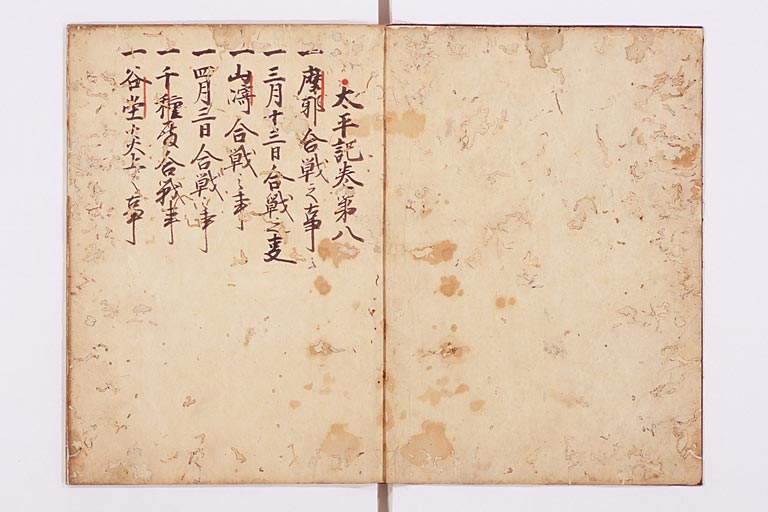 太平記巻第八
一 摩耶合戦之事
一 三月十三日合戦之叓
一 山崎合戦之事
一 四月三日合戦之事
一 千種殿合戦事
一 谷堂炎上之事